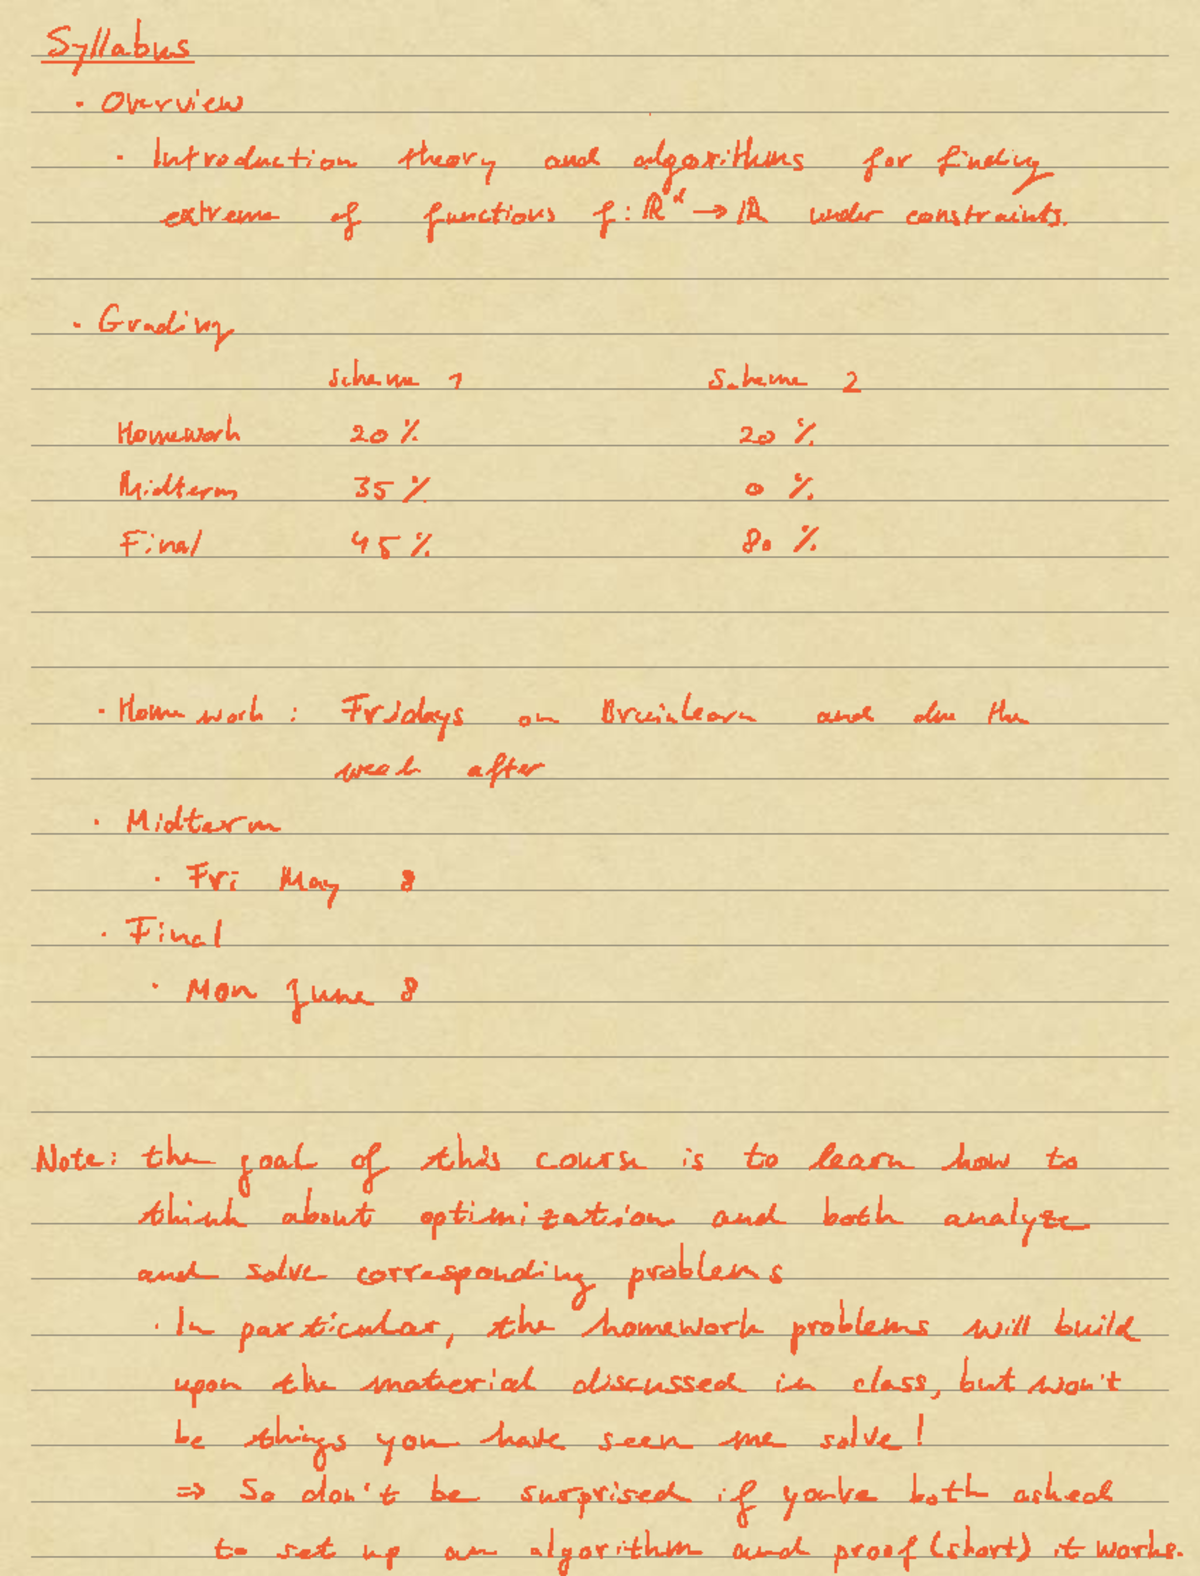 Syllabus
· Overview
· Introduction theory and algorithms for finding
extreme of functions f: ℝᵈ → ℝ under constraints.
· Grading
Scheme 1 Scheme 2
Homework 20 % 20 %
Midterm 35 % 0 %
Final 45 % 80 %
· Homework : Fridays on BruinLearn and due the
week after
· Midterm
· Fri May 8
· Final
· Mon June 8
Note: the goal of this course is to learn how to
think about optimization and both analyze
and solve corresponding problems
· In particular, the homework problems will build
upon the material discussed in class, but won't
be things you have seen me solve!
⇒ So don't be surprised if you're both asked
to set up an algorithm and proof (short) it works.